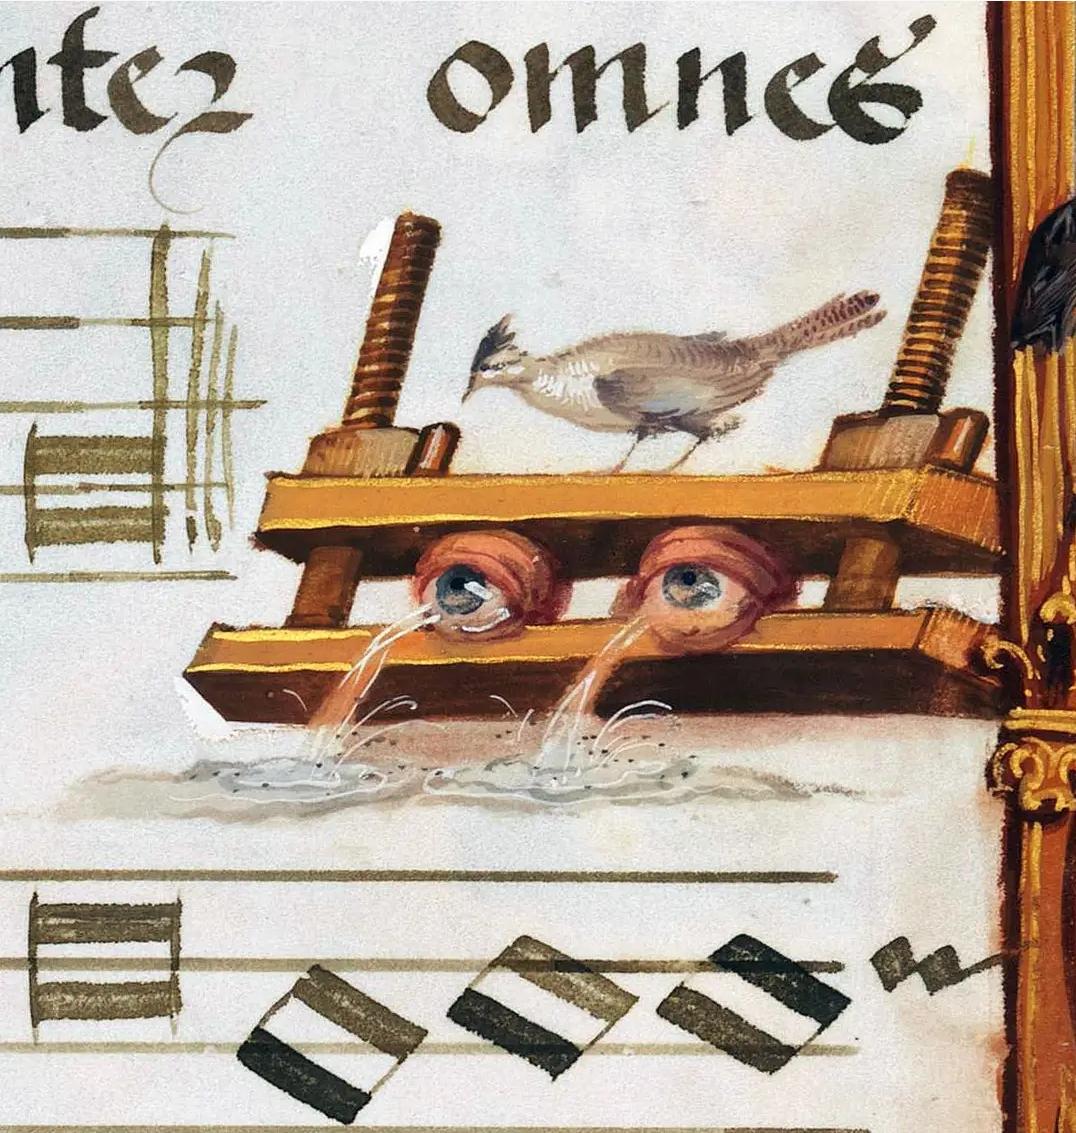 ntez omnes